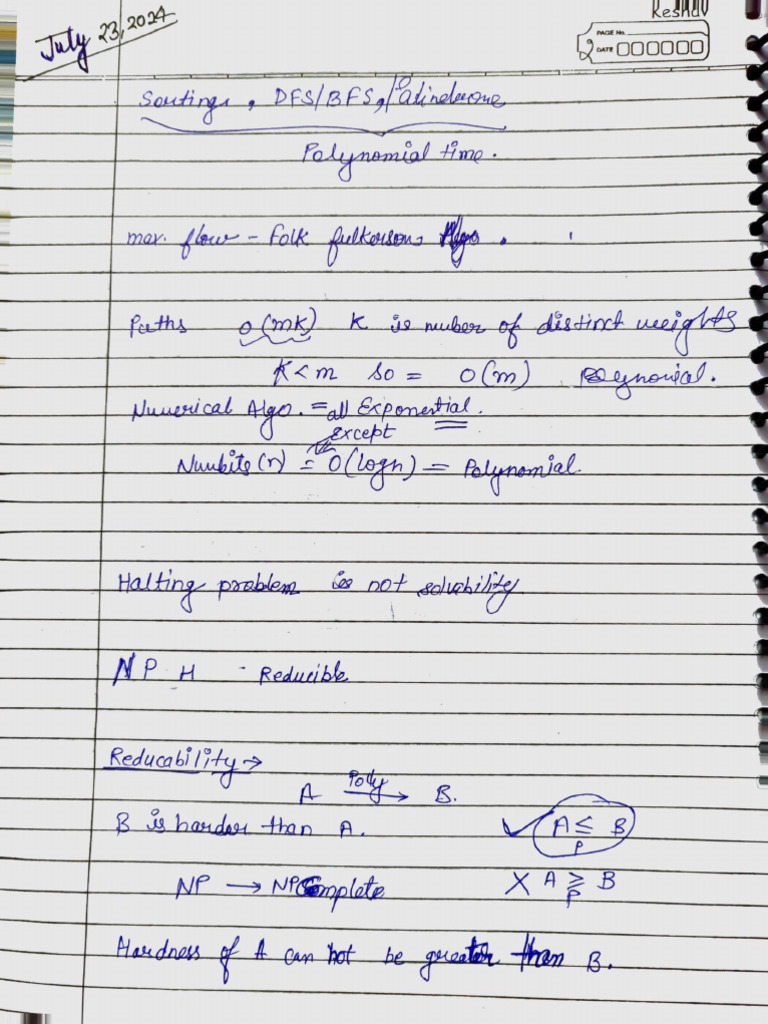 Keshav
July 23, 2024
PAGE No.
DATE
Sorting, DFS/BFS, Palindrome
Polynomial time.
max. flow - Folk fulkerson, Algo.
Paths O(mk) K is nuber of distinct weights
K < m so = O(m) Polynomial.
Numerical Algo. = all Exponential.
except
Numbits(n) = O(logn) = Polynomial.
Halting problem is not solvability
NP H - Reducible
Reducability →
A Poly → B.
B is harder than A. ✓ A ≤p B
NP → NPComplete X A ≥p B
Hardness of A can not be greater than B.